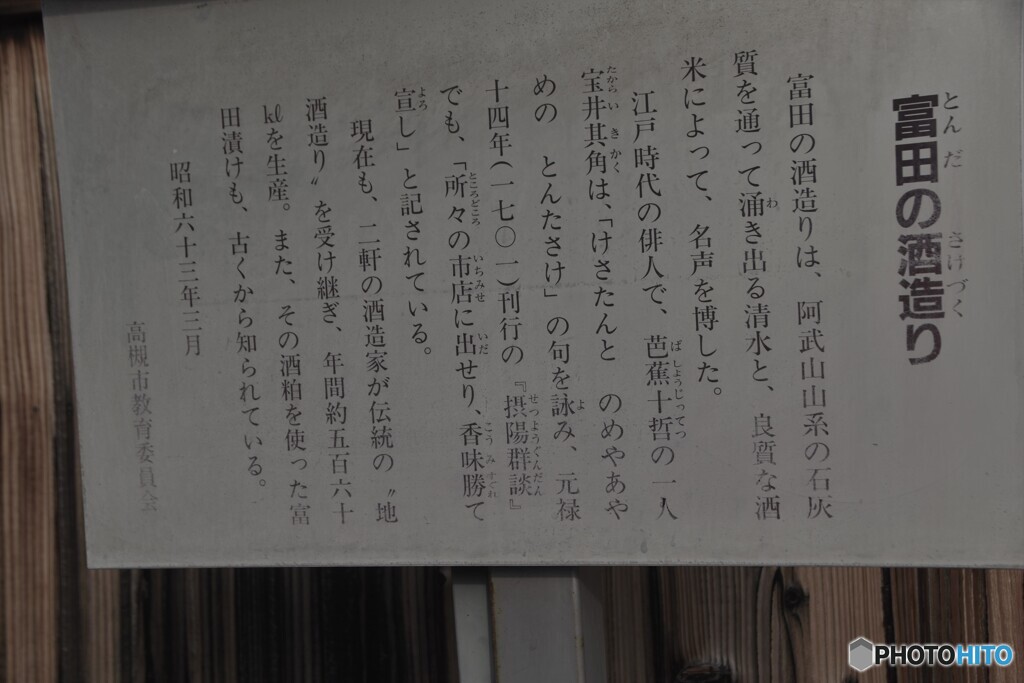 富田の酒造り
とんだ さけづく
富田の酒造りは、阿武山山系の石灰
質を通って涌き出る清水と、良質な酒
わ
米によって、名声を博した。
江戸時代の俳人で、芭蕉十哲の一人
ばしょうじってつ
宝井其角は、「けさたんと のめやあや
たからいきかく
めの とんたさけ」の句を詠み、元禄
よ
十四年(一七〇一)刊行の『摂陽群談』
せつようぐんだん
でも、「所々の市店に出せり、香味勝て
ところどころ いちみせ いだ こうみ すぐれ
宣し」と記されている。
よろ
現在も、二軒の酒造家が伝統の〝地
酒造り〟を受け継ぎ、年間約五百六十
㎘を生産。また、その酒粕を使った富
田漬けも、古くから知られている。
昭和六十三年三月
高槻市教育委員会
PHOTOHITO